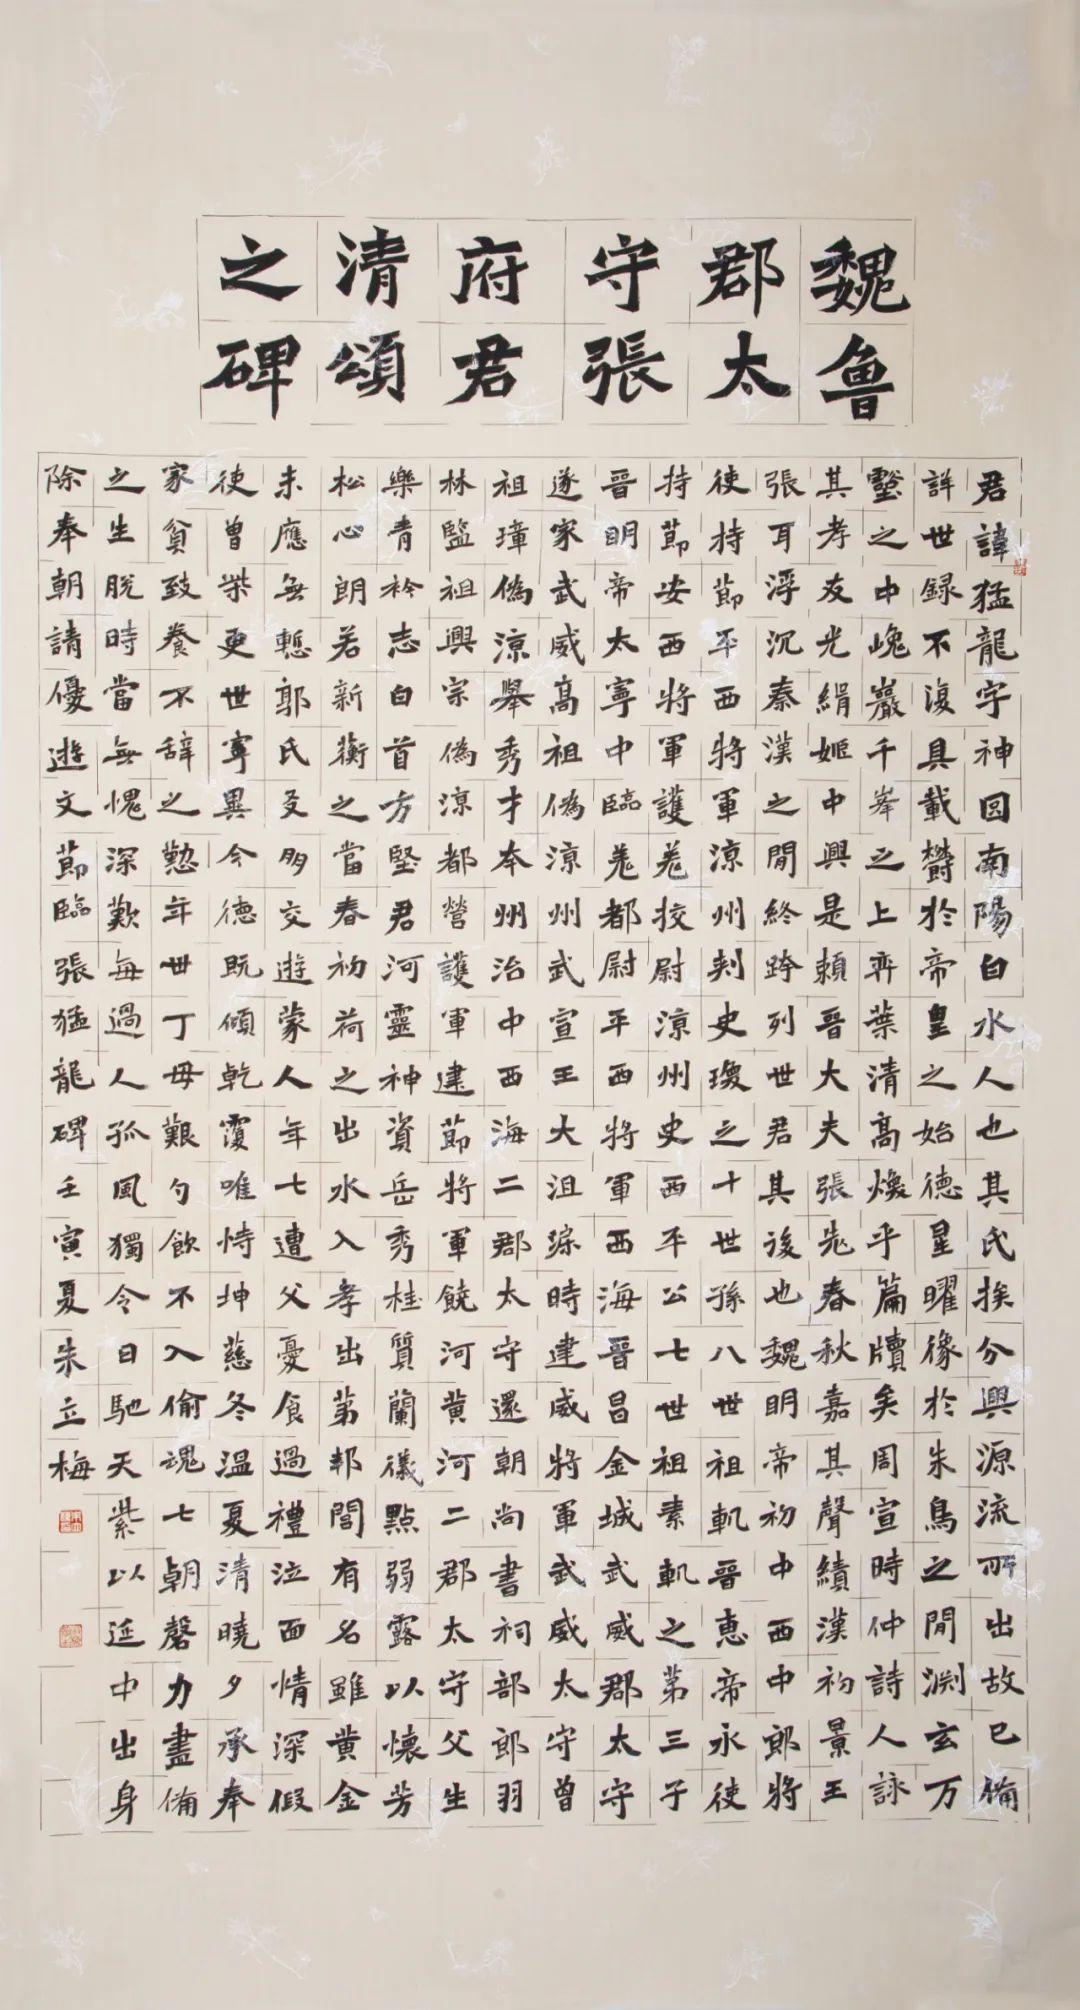 魏魯
郡太
守張
府君
清頌
之碑
君諱猛龍字神囧南陽白水人也其氏族分興源流所出故已備
詳世録不復具載欝於帝皇之始德星曜像於朱鳥之閒淵玄万
壑之中巉巖千峯之上弈葉清高煥乎篇牘矣周宣時仲詩人詠
其孝友光絹姬中興是賴晉大夫張老春秋嘉其聲績漢初景王
張耳浮沉秦漢之閒終跨列世君其後也魏明帝初中西中郎將
使持節平西將軍涼州刾史瓊之十世孫八世祖軌晉惠帝永使
持節安西將軍護羗挍尉涼州史西平公七世祖素軌之第三子
晉明帝太寧中臨羗都尉平西將軍西海晉昌金城武威郡太守
遂家武威高祖偽涼州武宣王大沮琮時建威將軍武威太守曾
祖璋偽涼舉秀才本州治中西海二郡太守還朝尚書祠部郎羽
林監祖興宗偽涼都營護軍建節將軍饒河黄河二郡太守父生
樂青衿志白首方堅君河靈神資岳秀桂質蘭儀點弱露以懷芳
松心朗若新蘅之當春初荷之出水入孝出第邦閭有名雖黄金
未應無慙郭氏友朋交遊蒙人年七遭父憂食過禮泣面情深假
使曾柴更世寧異今德既傾乾覆唯恃坤慈冬温夏清曉夕承奉
家貧致養不辭之懃年世丁母艱勺飲不入偷魂七朝磬力盡備
之生脫時當無愧深歎每過人孤風獨令日馳天紫以延中出身
除奉朝請優遊文節臨張猛龍碑壬寅夏朱立梅